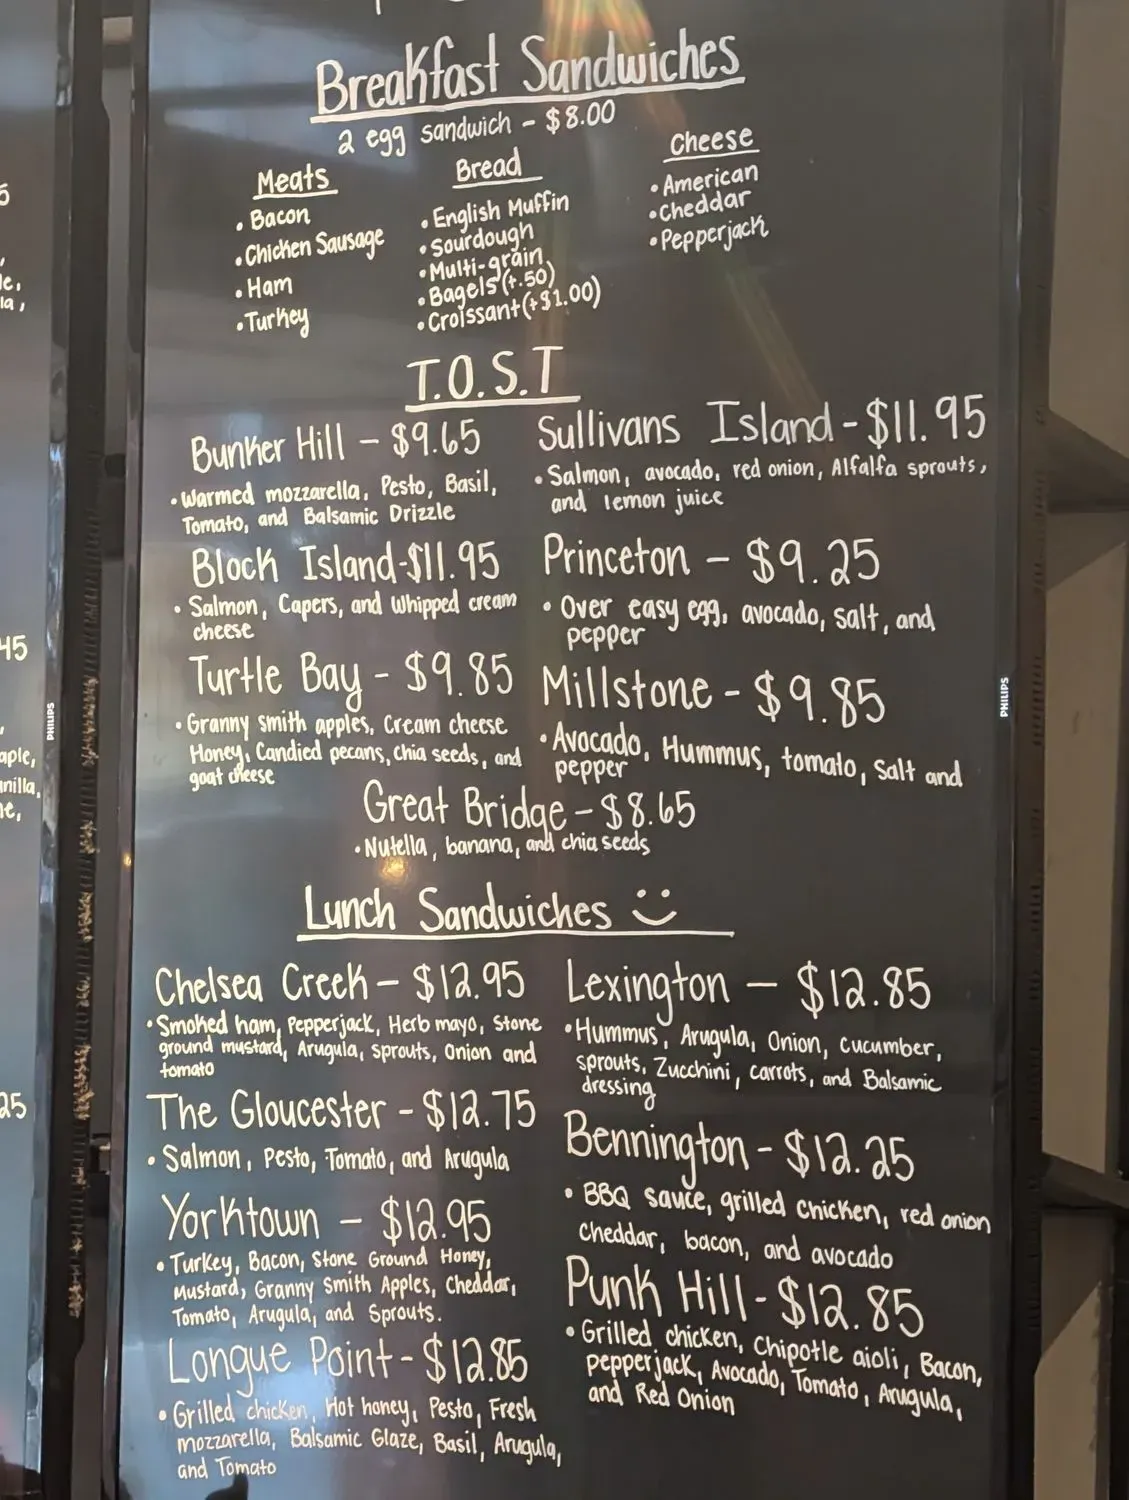 Breakfast Sandwiches
2 egg sandwich - $8.00
Meats
• Bacon
• Chicken Sausage
• Ham
• Turkey
Bread
• English Muffin
• Sourdough
• Multi-grain
• Bagels (+.50)
• Croissant (+$1.00)
Cheese
• American
• Cheddar
• Pepperjack
T.O.S.T
Bunker Hill - $9.65
• Warmed mozzarella, Pesto, Basil,
Tomato, and Balsamic Drizzle
Block Island-$11.95
• Salmon, Capers, and Whipped cream
cheese
Turtle Bay - $9.85
• Granny smith apples, Cream cheese
Honey, Candied pecans, chia seeds, and
goat cheese
Sullivans Island - $11.95
• Salmon, avocado, red onion, Alfalfa sprouts,
and lemon juice
Princeton - $9.25
• Over easy egg, avocado, salt, and
pepper
Millstone - $9.85
• Avocado, Hummus, tomato, Salt and
pepper
Great Bridge - $8.65
• Nutella, banana, and chia seeds
Lunch Sandwiches
Chelsea Creek - $12.95
• Smoked ham, Pepperjack, Herb mayo, Stone
ground mustard, Arugula, Sprouts, Onion and
tomato
The Gloucester - $12.75
• Salmon, Pesto, Tomato, and Arugula
Yorktown - $12.95
• Turkey, Bacon, Stone Ground Honey,
Mustard, Granny Smith Apples, Cheddar,
Tomato, Arugula, and Sprouts.
Longue Point - $12.85
• Grilled chicken, Hot honey, Pesto, Fresh
mozzarella, Balsamic Glaze, Basil, Arugula,
and Tomato
Lexington - $12.85
• Hummus, Arugula, Onion, cucumber,
sprouts, Zucchini, carrots, and Balsamic
dressing
Bennington - $12.25
• BBQ sauce, grilled chicken, red onion
cheddar, bacon, and avocado
Punk Hill - $12.85
• Grilled chicken, Chipotle aioli, Bacon,
pepperjack, Avocado, Tomato, Arugula,
and Red Onion
PHILIPS
PHILIPS